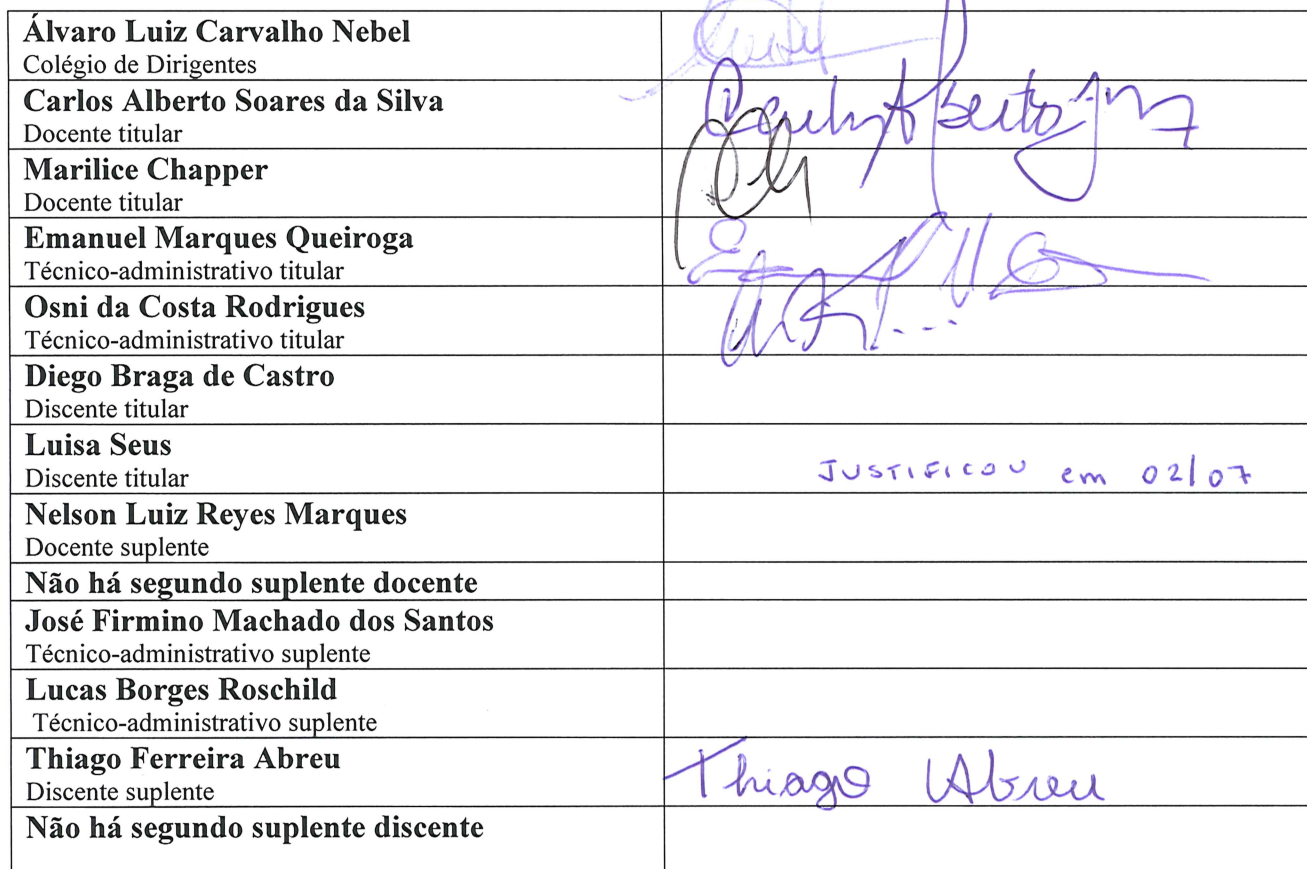 Álvaro Luiz Carvalho Nebel
Colégio de Dirigentes
Carlos Alberto Soares da Silva
Docente titular
Marilice Chapper
Docente titular
Emanuel Marques Queiroga
Técnico-administrativo titular
Osni da Costa Rodrigues
Técnico-administrativo titular
Diego Braga de Castro
Discente titular
Luisa Seus
Discente titular
JUSTIFICOU em 02/07
Nelson Luiz Reyes Marques
Docente suplente
Não há segundo suplente docente
José Firmino Machado dos Santos
Técnico-administrativo suplente
Lucas Borges Roschild
Técnico-administrativo suplente
Thiago Ferreira Abreu
Discente suplente
Thiago Abreu
Não há segundo suplente discente